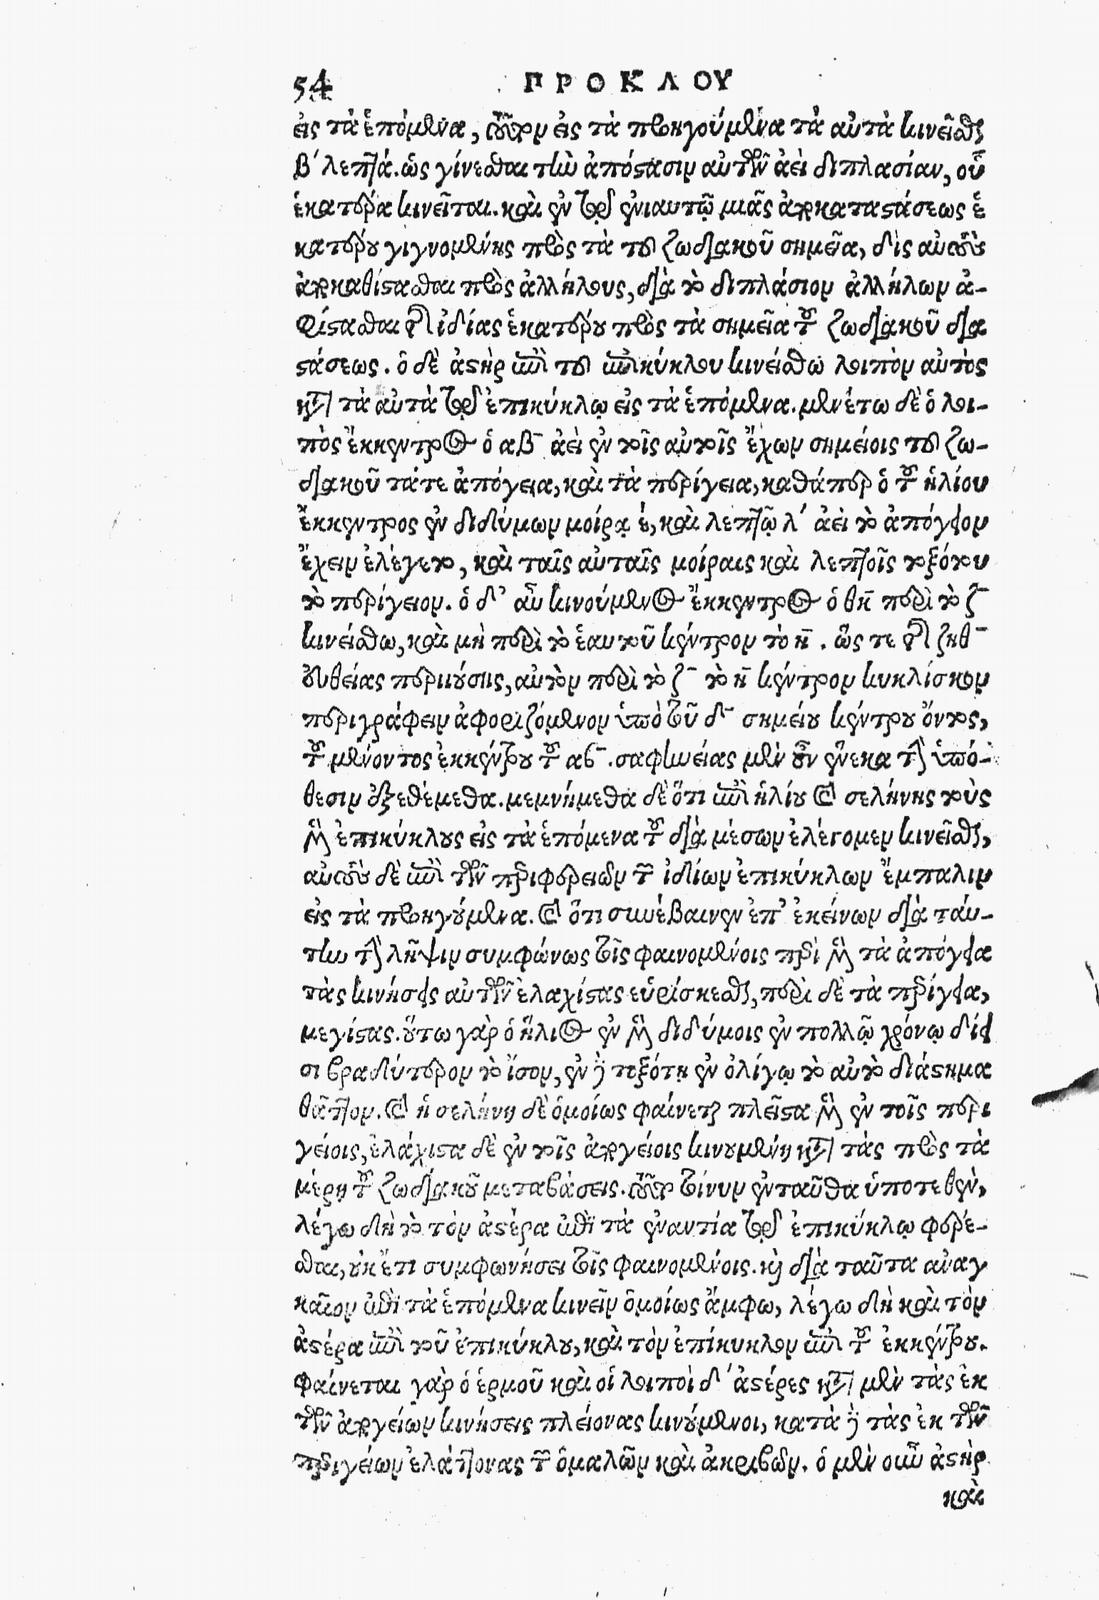 54 ΠΡΟΚΛΟΥ
εἰς τὰ ἑπόμενα, ὥσπερ εἰς τὰ προηγούμενα τὰ αὐτὰ κινεῖσθαι
β΄ λεπτά. ὡς γίνεσθαι τὴν ἀπόστασιν αὐτῶν ἀεὶ διπλασίαν, οὗ
ἑκατέρα κινεῖται. καὶ ἐν τῷ ἐνιαυτῷ μιᾶς ἀποκαταστάσεως ἑ
κατέρου γιγνομένης πρὸς τὰ τοῦ ζωδιακοῦ σημεῖα, δὶς αὐτοὺς
ἀποκαθίστασθαι πρὸς ἀλλήλους, διὰ τὸ διπλάσιον ἀλλήλων ἀ-
φίστασθαι τῆς ἰδίας ἑκατέρου πρὸς τὰ σημεῖα τοῦ ζωδιακοῦ δια
στάσεως. ὁ δὲ ἀστὴρ ἐπὶ τοῦ ἐπικύκλου κινείσθω λοιπὸν αὐτὸς
κατὰ τὰ αὐτὰ τῷ ἐπικύκλῳ εἰς τὰ ἑπόμενα. μενέτω δὲ ὁ λοι-
πὸς ἔκκεντρος ὁ αβ ἀεὶ ἐν τοῖς αὐτοῖς ἔχων σημείοις τοῦ ζω-
διακοῦ τά τε ἀπόγεια, καὶ τὰ περίγεια, καθάπερ ὁ τοῦ ἡλίου
ἔκκεντρος ἐν διδύμων μοίρᾳ έ, καὶ λεπτῷ λ΄ ἀεὶ τὸ ἀπόγειον
ἔχειν ἐλέγετο, καὶ ταῖς αὐταῖς μοίραις καὶ λεπτοῖς τοξότου
τὸ περίγειον. ὁ δ' αὖ κινούμενος ἔκκεντρος ὁ θη περὶ τὸ ζ
κινείσθω, καὶ μὴ περὶ τὸ ἑαυτοῦ κέντρον τὸ η. ὥς τε τῆς ζηθ
εὐθείας περιιούσης, αὐτὸν περὶ τὸ ζ τὸ η κέντρον κυκλίσκον
περιγράφειν ἀφοριζόμενον ὑπὸ τοῦ δ σημείου κέντρου ὄντος,
τοῦ μένοντος ἐκκέντρου τοῦ αβ. σαφηνείας μὲν οὖν ἕνεκα τὴν ὑπό-
θεσιν ἐξεθέμεθα. μεμνήμεθα δὲ ὅτι ἐπὶ ἡλίου καὶ σελήνης τοὺς
μὲν ἐπικύκλους εἰς τὰ ἑπόμενα τοῦ διὰ μέσων ἐλέγομεν κινεῖσθαι,
αὐτοὺς δὲ ἐπὶ τῶν περιφερειῶν τῶν ἰδίων ἐπικύκλων ἔμπαλιν
εἰς τὰ προηγούμενα. καὶ ὅτι συνέβαινεν ἐπ' ἐκείνων διὰ ταύ-
την τὴν λῆψιν συμφώνως τοῖς φαινομένοις περὶ μὲν τὰ ἀπόγεια
τὰς κινήσεις αὐτῶν ἐλαχίστας εὑρίσκεσθαι, περὶ δὲ τὰ περίγεια,
μεγίστας. οὕτω γὰρ ὁ ἥλιος ἐν μὲν διδύμοις ἐν πολλῷ χρόνῳ δίει
σι βραδύτερον τὸ ἴσον, ἐν δὲ τοξότῃ ἐν ὀλίγῳ τὸ αὐτὸ διάστημα
θᾶττον. καὶ ἡ σελήνη δὲ ὁμοίως φαίνεται πλεῖστα μὲν ἐν τοῖς περι
γείοις, ἐλάχιστα δὲ ἐν τοῖς ἀπογείοις κινουμένη κατὰ τὰς πρὸς τὰ
μέρη τοῦ ζωδιακοῦ μεταβάσεις. ὅπερ τοίνυν ἐνταῦθα ὑποτεθὲν,
λέγω δὴ τὸ τὸν ἀστέρα ἐπὶ τὰ ἐναντία τῷ ἐπικύκλῳ φέρε-
σθαι, οὐκ ἔτι συμφωνήσει τοῖς φαινομένοις. καὶ διὰ ταῦτα ἀναγ
καῖον ἐπὶ τὰ ἑπόμενα κινεῖν ὁμοίως ἄμφω, λέγω δὴ καὶ τὸν
ἀστέρα ἐπὶ τοῦ ἐπικύκλου, καὶ τὸν ἐπίκυκλον ἐπὶ τοῦ ἐκκέντρου.
φαίνεται γὰρ ὁ ἑρμοῦ καὶ οἱ λοιποὶ δ΄ ἀστέρες κατὰ μὲν τὰς ἐκ
τῶν ἀπογείων κινήσεις πλείονας κινούμενοι, κατὰ δὲ τὰς ἐκ τῶν
περιγείων ἐλάττονας τῶν ὁμαλῶν καὶ ἀκριβῶν. ὁ μὲν οὖν ἀστὴρ
καὶ